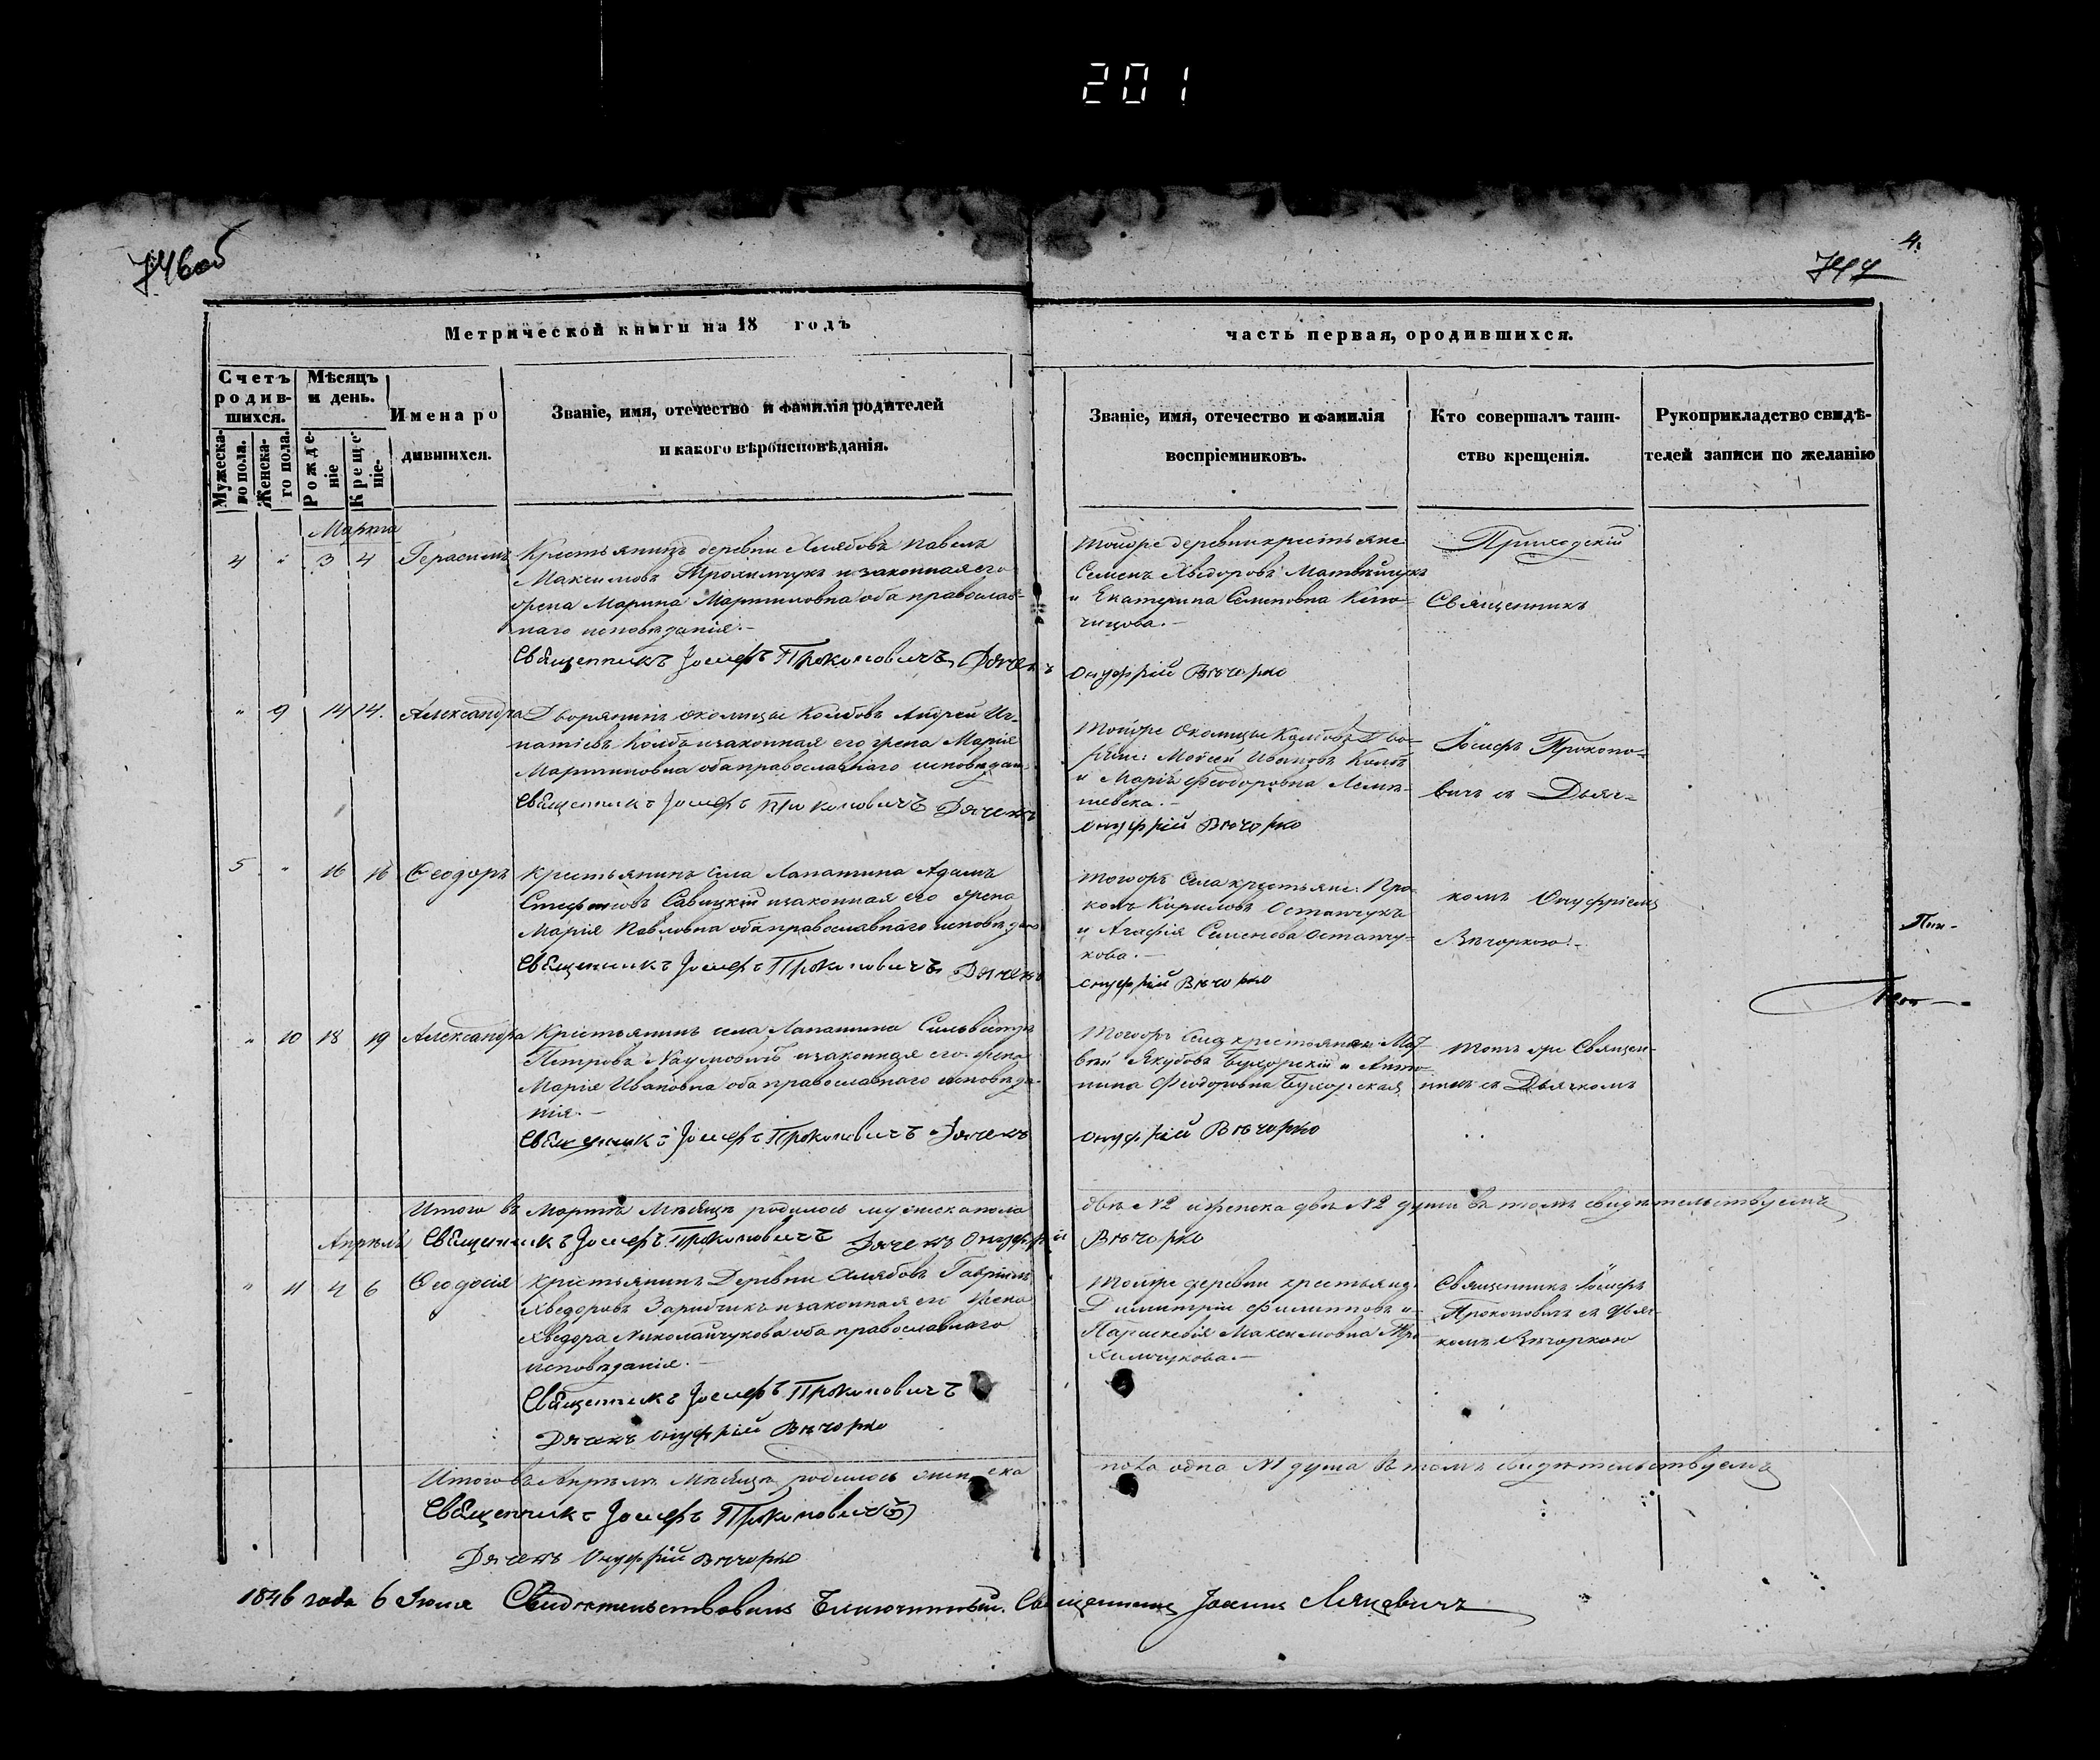 201
746 об
4.
747
Метрической книги на 18 годъ
часть первая, ородившихся.
Счетъ родив-шихся.
Мужеска-го пола.
Женска-го пола.
Мѣсяцъ и день.
Рожде-ніе
Креще-ніе.
Имена ро
дившихся.
Званіе, имя, отечество и фамилія родителей
и какого вѣроисповѣданія.
Званіе, имя, отечество и фамилія
воспріемниковъ.
Кто совершалъ таин-
ство крещенія.
Рукоприкладство свидѣ-
телей записи по желанію
Марта
4 " 3 4 Герасимъ
Крестьянинъ деревни Хлябовъ Павелъ
Максимовъ Трохимчукъ и законная его
жена Марина Мартиновна оба православ-
наго исповѣданія.-
Священникъ Іосифъ Прокоповичъ, Дячекъ
Тойже деревни крестьяне
Семенъ Хведоровъ Матвѣйчукъ
и Екатерина Семеновна
Онуфрій Вѣчорко
Приходскій
Священникъ
" 9 14 14. Александра
Дворянинъ околицы Колбовъ Андрей Иг-
натіевъ Колбъ и законная его жена Марія
Мартиновна оба православнаго исповѣдан:
Священникъ Іосифъ Прокоповичъ Дячекъ
Тойже Околицы Колбовъ Дво-
ряне: Мойсей Ивановъ Колбъ
и Марія Феодоровна
Онуфрій Вѣчорко
Іосифъ Прокопо-
вичъ съ Дьяч-
5 " 16 16 Ѳеодоръ
Крестьянинъ села Лапатина Адамъ
Стефановъ Савицкій и законная его жена
Марія Павловна оба православнаго исповѣдан
Священникъ Іосифъ Прокоповичъ Дячекъ
Тогожъ Села крестьяне: Про-
копъ Кириловъ Остапчукъ
и Агафія Семенова Остапчу-
кова.-
Онуфрій Вѣчорко
комъ Онуфріемъ
Вѣчоркою.-
" 10 18 19 Александра
Крестьянинъ села Лапатина Сильвестръ
Петровъ Наумовичъ и законная его жена
Марія Ивановна оба православнаго исповѣда-
нія.-
Священникъ Іосифъ Прокоповичъ Дячекъ
Тогожъ Села крестьяне: Мат-
вѣй Якубовъ Бухорскій и Анто-
нина Феодоровна Бухорская
Онуфрій Вѣчорко
Тотъ же Священ-
никъ съ Дьячкомъ
Итого въ Мартѣ Мѣсяцѣ родилось мужеска пола
двѣ №2 и женска двѣ №2 души въ томъ свидѣтельствуемъ
Священникъ Іосифъ Прокоповичъ Дячекъ Онуфрій Вѣчорко
Апрѣль
" 11 4 6 Ѳеодосія
Крестьянинъ Деревни Хлябовъ Гавріилъ
Хведоровъ Зарибчикъ и законная его жена
Хведора Николайчукова оба православнаго
исповѣданія.-
Священникъ Іосифъ Прокоповичъ
Дячекъ Онуфрій Вѣчорко
Тойже деревни крестьяне
Димитрій Филиповъ и
Параскевія Максимовна Тро-
химчукова.-
Священникъ Іосифъ
Прокоповичъ съ Дьяч-
комъ Вѣчоркою
Итого въ Апрѣлѣ Мѣсяцѣ родилось женска
пола одна №1 душа въ томъ свидѣтельствуемъ
Священникъ Іосифъ Прокоповичъ
Дячекъ Онуфрій Вѣчорко
1846 года 6 Іюля Свидѣтельствовалъ Благочинный Священникъ Іоаннъ Ляцевичъ